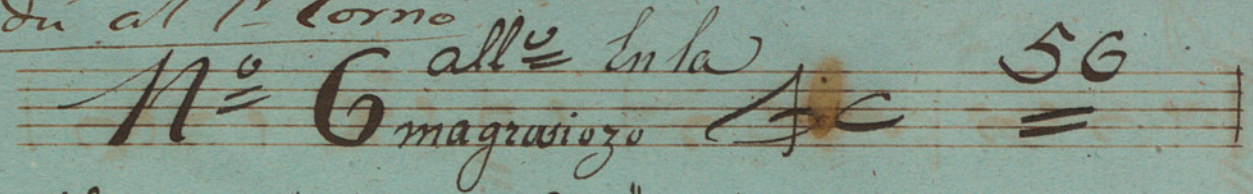 du al 1º Corno
Nº 6 allº In la 56
magrasiozo